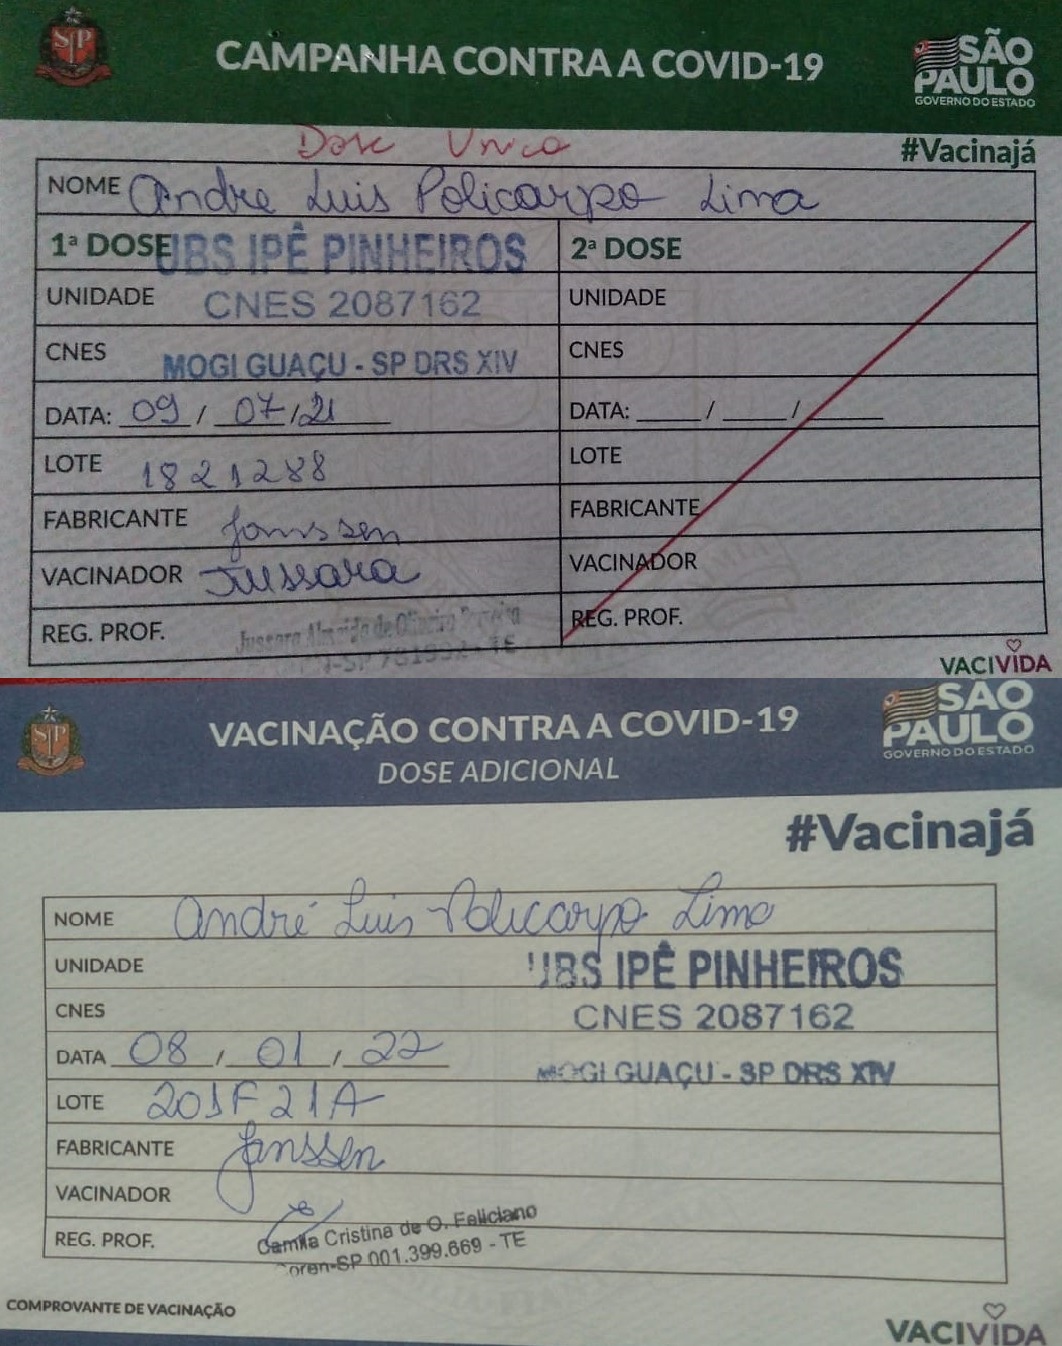 CAMPANHA CONTRA A COVID-19
SP
SÃO
PAULO
GOVERNO DO ESTADO
Dose Unica
#Vacinajá
NOME Andre Luis Policarpo Lima
1ª DOSE UBS IPÊ PINHEIROS 2ª DOSE
UNIDADE CNES 2087162 UNIDADE
CNES MOGI GUAÇU - SP DRS XIV CNES
DATA: 09 / 07 / 21 DATA: ____ / ____ / ____
LOTE 1821288 LOTE
FABRICANTE Janssen FABRICANTE
VACINADOR Jussara VACINADOR
REG. PROF. Jussara Almeida de Oliveira REG. PROF.
- TE
VACIVIDA
VACINAÇÃO CONTRA A COVID-19
DOSE ADICIONAL
SP
SÃO
PAULO
GOVERNO DO ESTADO
#Vacinajá
NOME André Luis Policarpo Lima
UNIDADE UBS IPÊ PINHEIROS
CNES CNES 2087162
DATA 08 / 01 / 22 MOGI GUAÇU - SP DRS XIV
LOTE 201F21A
FABRICANTE Janssen
VACINADOR
REG. PROF. Camila Cristina de O. Feliciano
Coren-SP 001.399.669 - TE
COMPROVANTE DE VACINAÇÃO
VACIVIDA